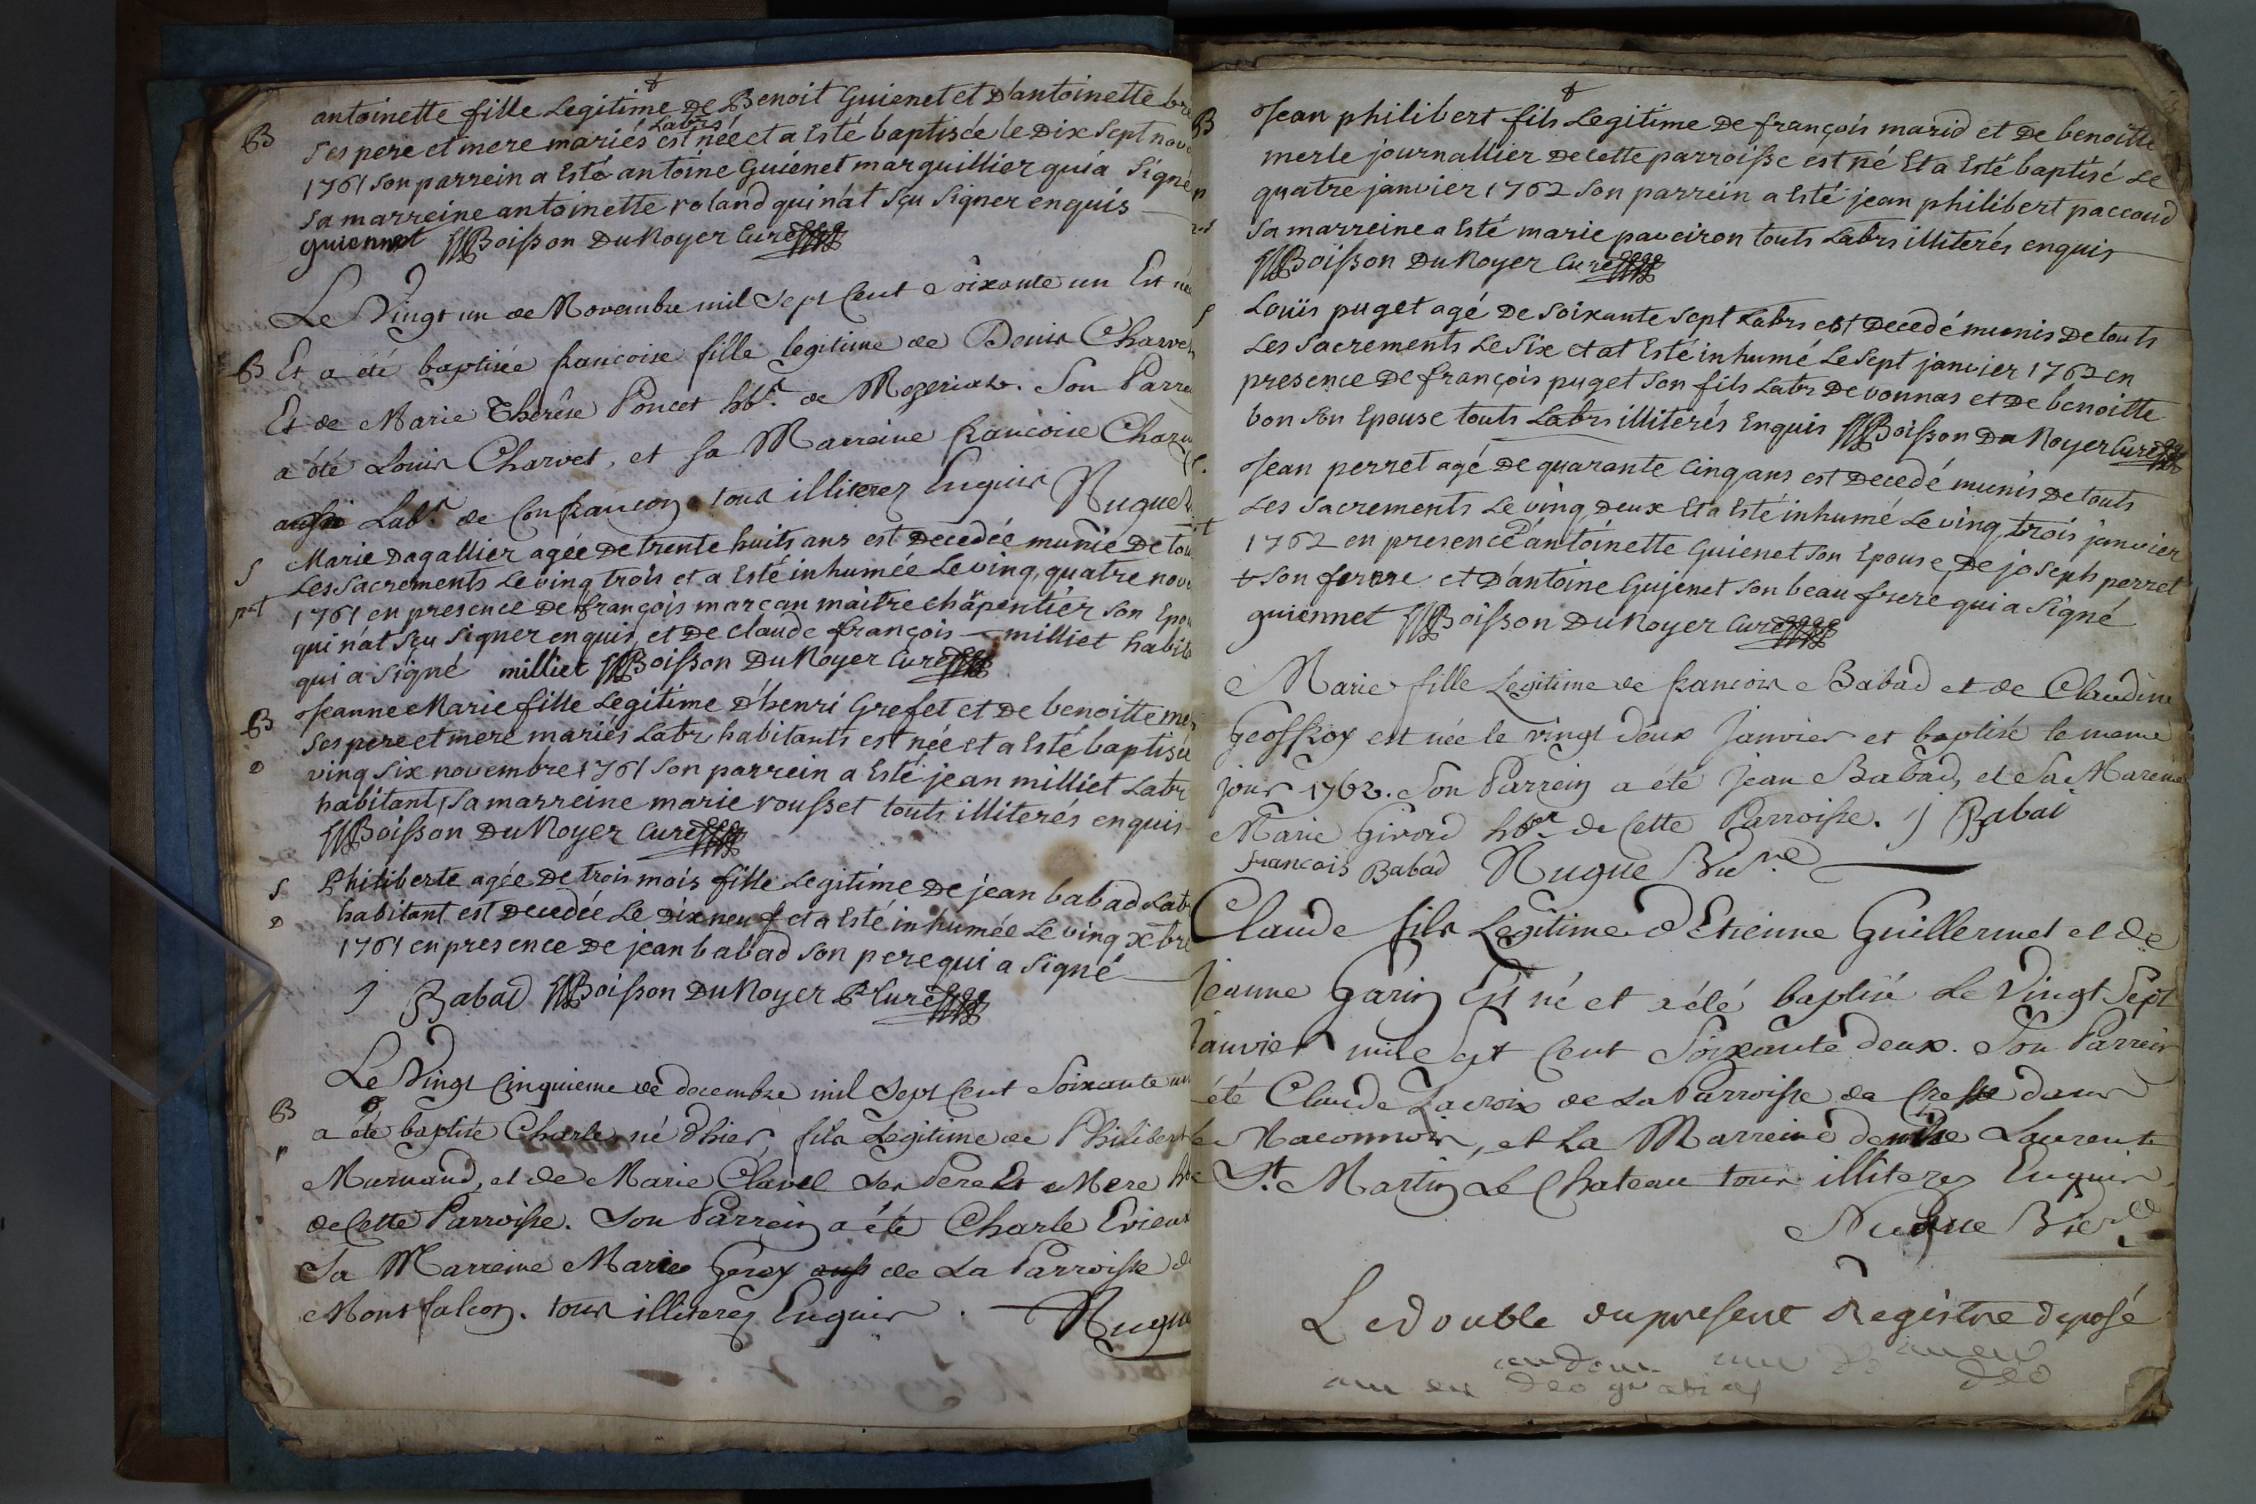 antoinette fille Legitime De Benoit Guienet et D'antoinette
B
Ses pere et mere mariés Labrs est née et a Esté baptisée le Dix Sept nov
1761 Son parrein a Esté antoine Guienet marguillier qui a Signé
Sa marreine antoinette roland qui n'at Sçu Signer enquis
guiennet Boisson Du Noyer Curé
Le Vingt un de Novembre mil Sept Cent Soixante un Est né
B Et a été baptisée francoise fille legitime de Denis Charvet
Et de Marie Thérèse Poncet hbt. de Mezeriat. Son Parre
a été Louis Charvet, et sa Marreine francoise
Labr. de Confrancon tous illiterez Enquis Nugue
S Marie Dagallier agée De trente huits ans est Decedée munie De tou
Les Sacrements Le ving trois et a Esté inhumée Le ving quatre nov
1761 en presence De françois marcan maitre chärpentiér Son Epou
qui n'at Sçu Signer enquis et De Claude françois milliet habit
qui a Signé milliet Boisson Du Noyer Curé
B Jeanne Marie fille Legitime D'henri Grefet et De benoitte me
Ses pere et mere mariés Labr habitants est née et a Esté baptisée
ving Six novembre 1761 Son parrein a Esté jean milliet Labr
habitant, Sa marreine marie rousset touts illiterés enquis
Boisson Du Noyer Curé
S Philiberte agée De trois mois fille Legitime De jean babad Lab
D habitant est Decedée Le Dix neuf et a Esté inhumée Le ving xbre
1761 en presence De jean babad Son pere qui a Signé
J Babad Boisson Du Noyer Ptr Curé
Le Vingt Cinquieme de decembre mil Sept Cent Soixante un
B a été baptisé Charle né d'hier, fils Legitime de Philibert
Murnand, et de Marie Clavel Ses Pere Et Mere
de Cette Parroisse. Son Parrein a été Charle Evieux
Sa Marreine Marie Gerey de La Parroisse d
Montfalcon. tous illiterez Enquis. Nugue
Jean philibert fils Legitime De françois marid et De benoitte
merle journallier De cette parroisse est né Et a Esté baptisé Le
quatre janvier 1762 Son parrein a Esté jean philibert paccoud
Sa marreine a Esté marie paveiron touts Labrs illiterés enquis
Boisson Du Noyer Curé
Louïs puget agé De Soixante Sept Labrs est Decedé munis De touts
Les Sacrements Le Six et at Esté inhumé Le Sept janvier 1762 en
presence De françois puget Son fils Labr De vonnas et De benoitte
bon Son Epouse touts Labrs illiterés Enquis Boisson Du Noyer Curé
Jean perret agé De quarante Cinq ans est Decedé munis De touts
Les Sacrements Le ving Deux Et a Esté inhumé Le ving trois janvier
1762 en presence D'antoinette Guienet Son Epouse, De joseph perret
Son frere et D'antoine Gujenet Son beau frere qui a Signé
guiennet Boisson Du Noyer Curé
Marie fille Légitime de francois Babad et de Claudine
Geoffroy est née le vingt deux Janvier et baptisé le meme
jour 1762. Son Parrein a été Jean Babad, et Sa Mareine
Marie Girord hbt de Cette Parroisse. J Babad
francois Babad Nugue Vic.re
Claude fils Legitime d'Etienne Guillermet et de
Jeanne Garin Est né et a été baptisé Le Vingt Sept
Janvier mil Sept Cent Soixante deux. Son Parrein
été Claude Lacroix de La Parroisse de dans
le Maconnois, et La Marreine denise Laurent
St. Martin Le Chateau tous illiterez Enquis
Nugue Vic.re
Le double du present Registre deposé
deo
deo gratias